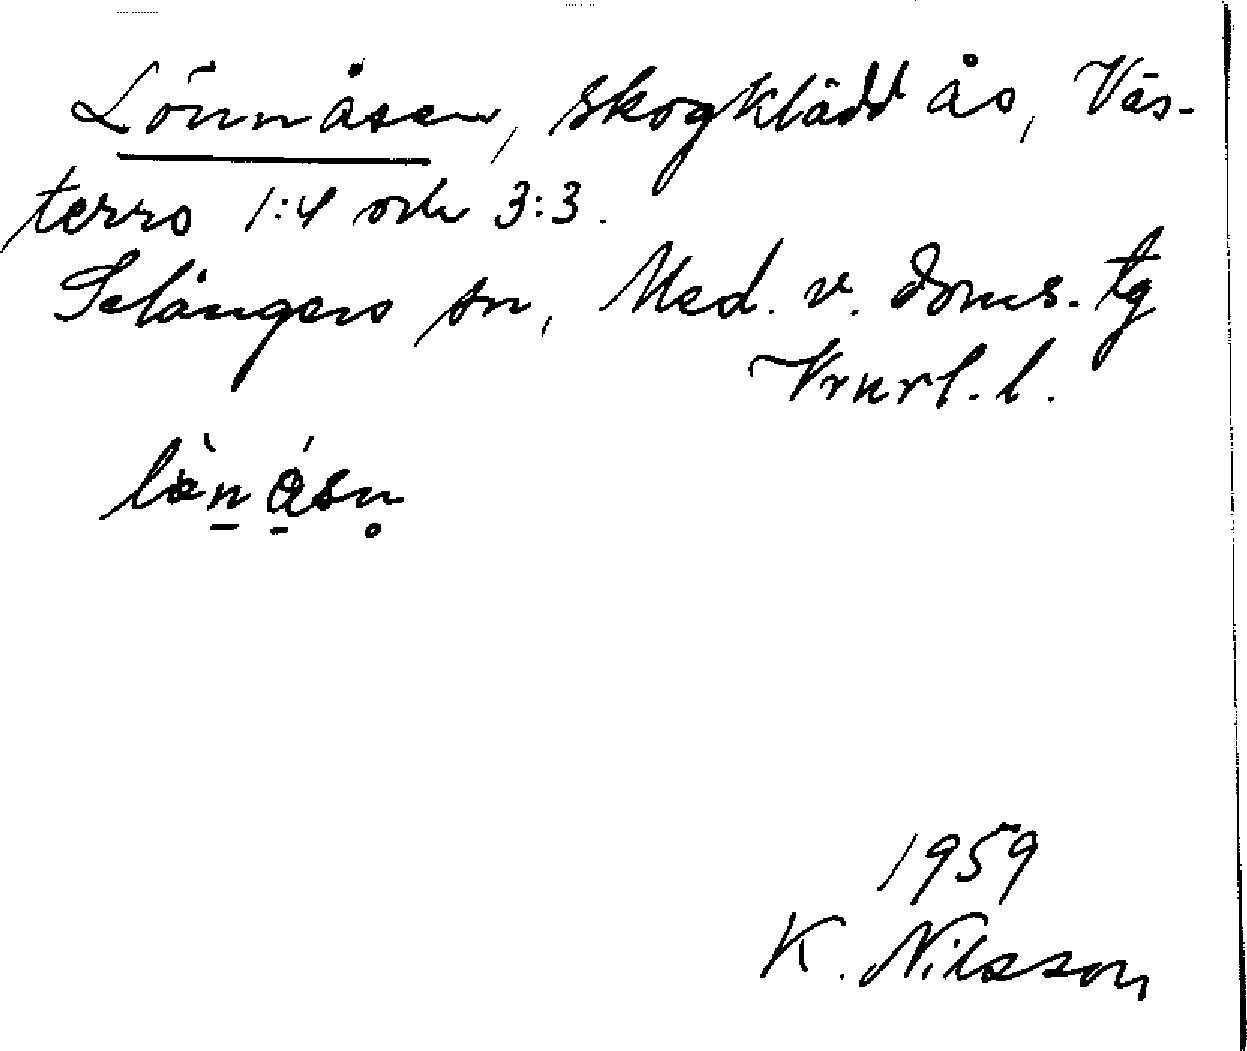 Lönnåsen, skogklädd ås, Väs-
terro 1:4 och 3:3.
Selångers sn, Med. v. doms. tg
Vrnrl. l.
1959
K. Nilsson